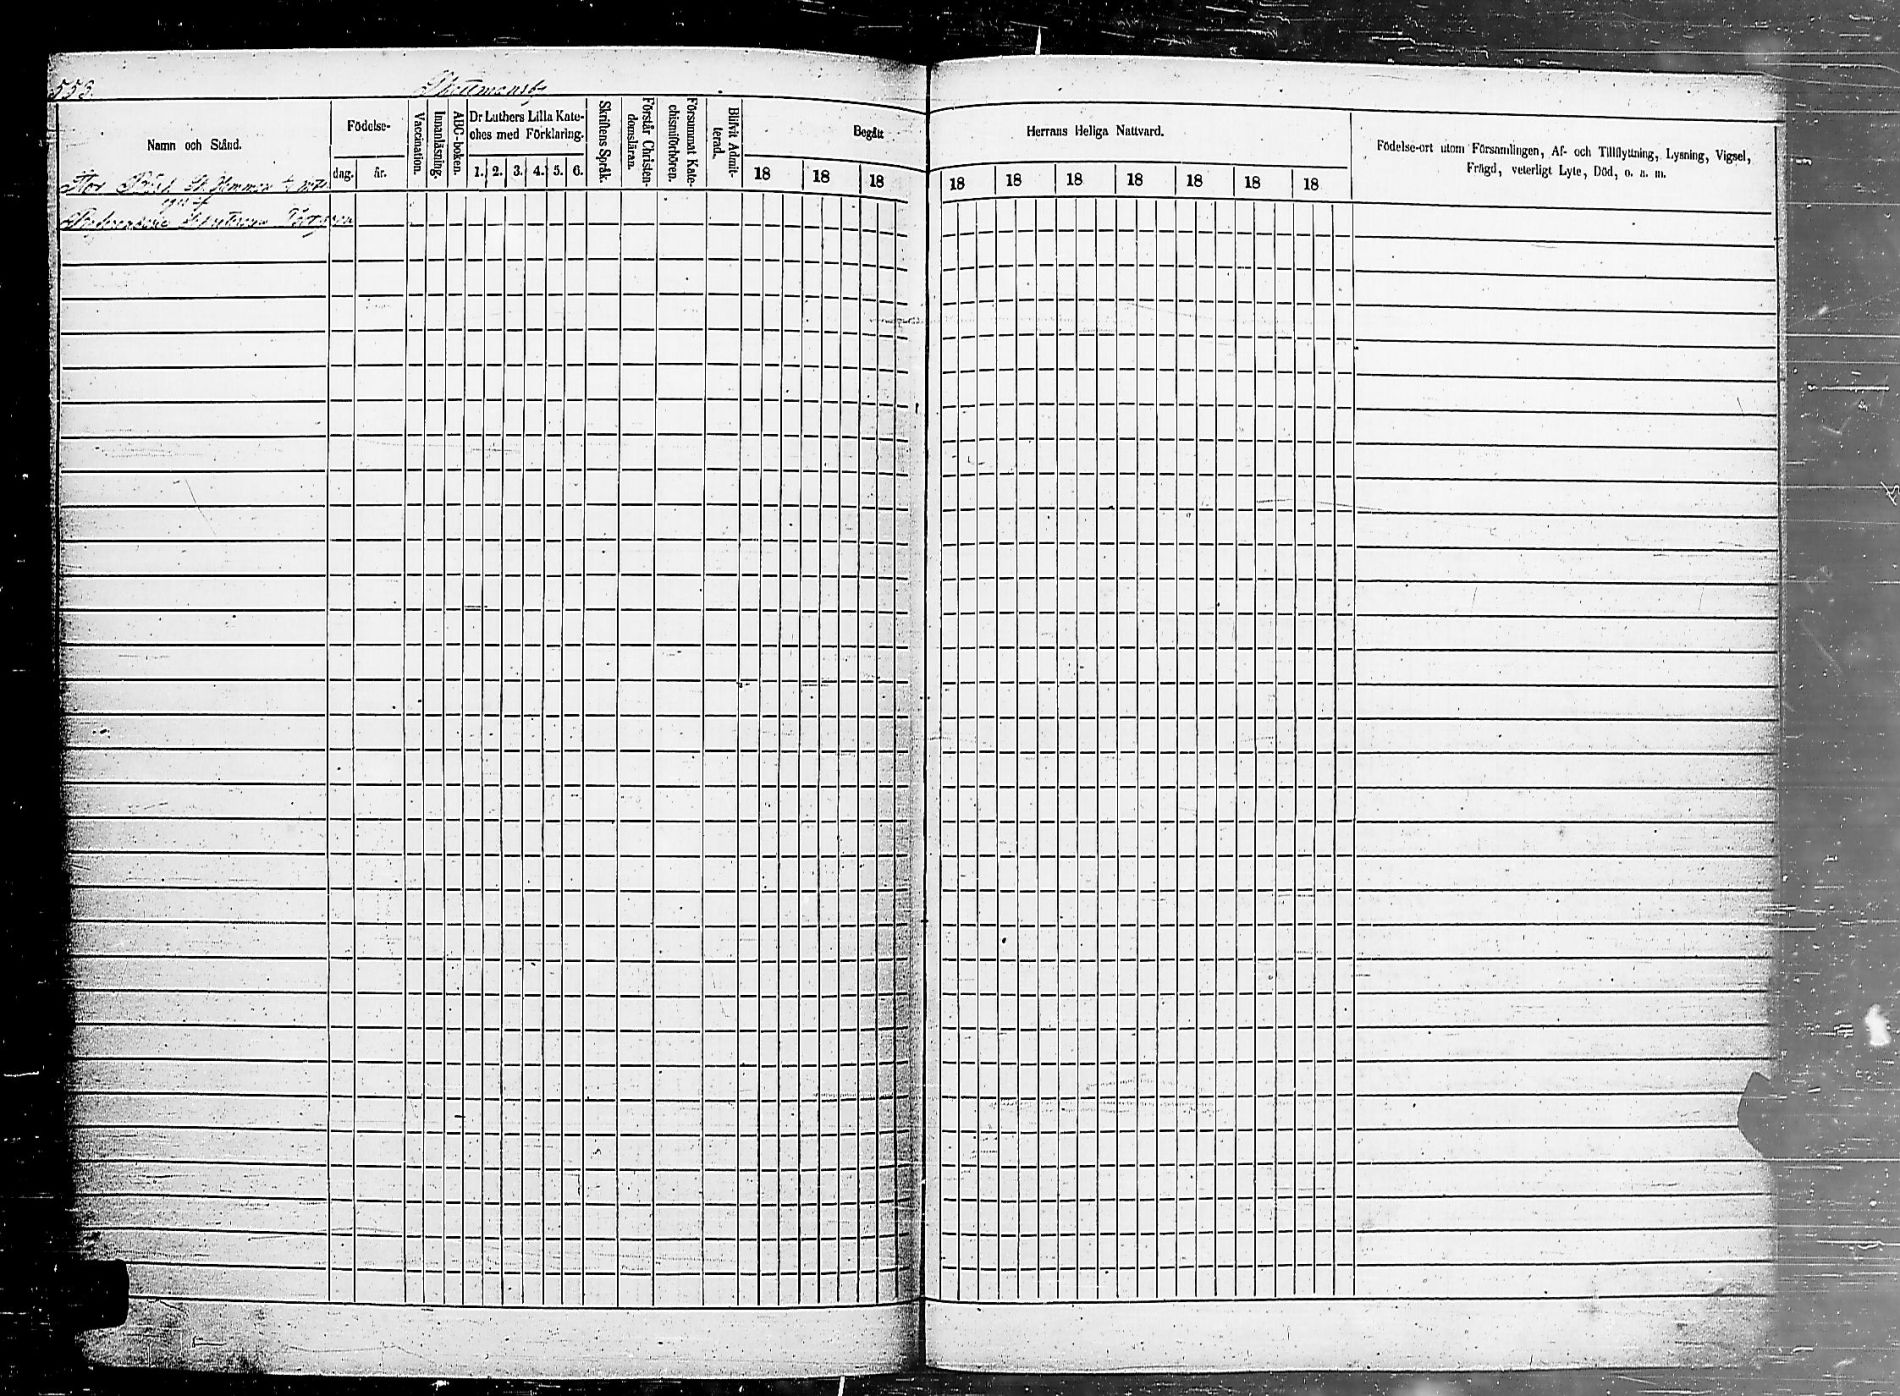 553.
Namn och Stånd.
Födelse-
dag.
år.
Vaccination.
Innanläsning.
ABC-boken.
Dr Luthers Lilla Kate-
ches med Förklaring.
1. 2. 3. 4. 5. 6.
Skriftens Språk.
Förstår Christen-
domsläran.
Försummat Kate-
chismiförhören.
Blifvit Admit-
terad.
Begått
18 18 18
Herrans Heliga Nattvard.
18 18 18 18 18 18 18
Födelse-ort utom Församlingen, Af- och Tillflyttning, Lysning, Vigsel,
Frägd, veterligt Lyte, Död, o. s. m.
Stor